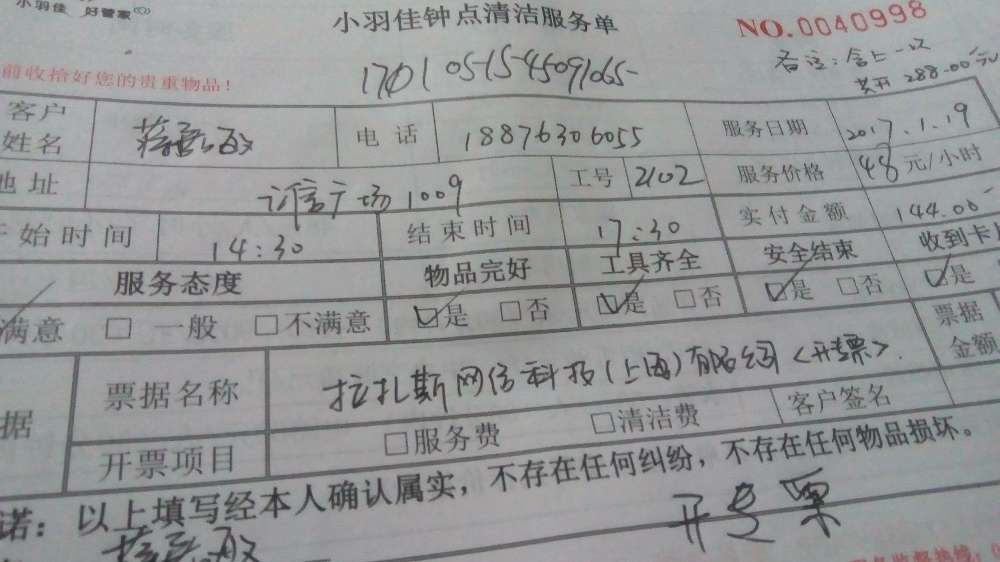 小羽佳 好管家
小羽佳钟点清洁服务单
NO.0040998
前收拾好您的贵重物品!
1701 05-15-45091065-
备注:含上一次
共开 288.00元
客户姓名 蒋 敏 电话 18876306055 服务日期 2017.1.19
地址 广场1009 工号 2102 服务价格 48元/小时
开始时间 14:30 结束时间 17:30 实付金额 144.00
服务态度 物品完好 工具齐全 安全结束 收到卡
满意 □ 一般 □不满意 ☑是 □否 ☑是 □否 ☑是 □否 ☑是
据 票据名称 拉扎斯网络科技(上海)有限公司<开票>. 票据金额
开票项目 □服务费 □清洁费 客户签名
诺:以上填写经本人确认属实,不存在任何纠纷,不存在任何物品损坏。
蒋 敏 开专票
务监督热线:(0